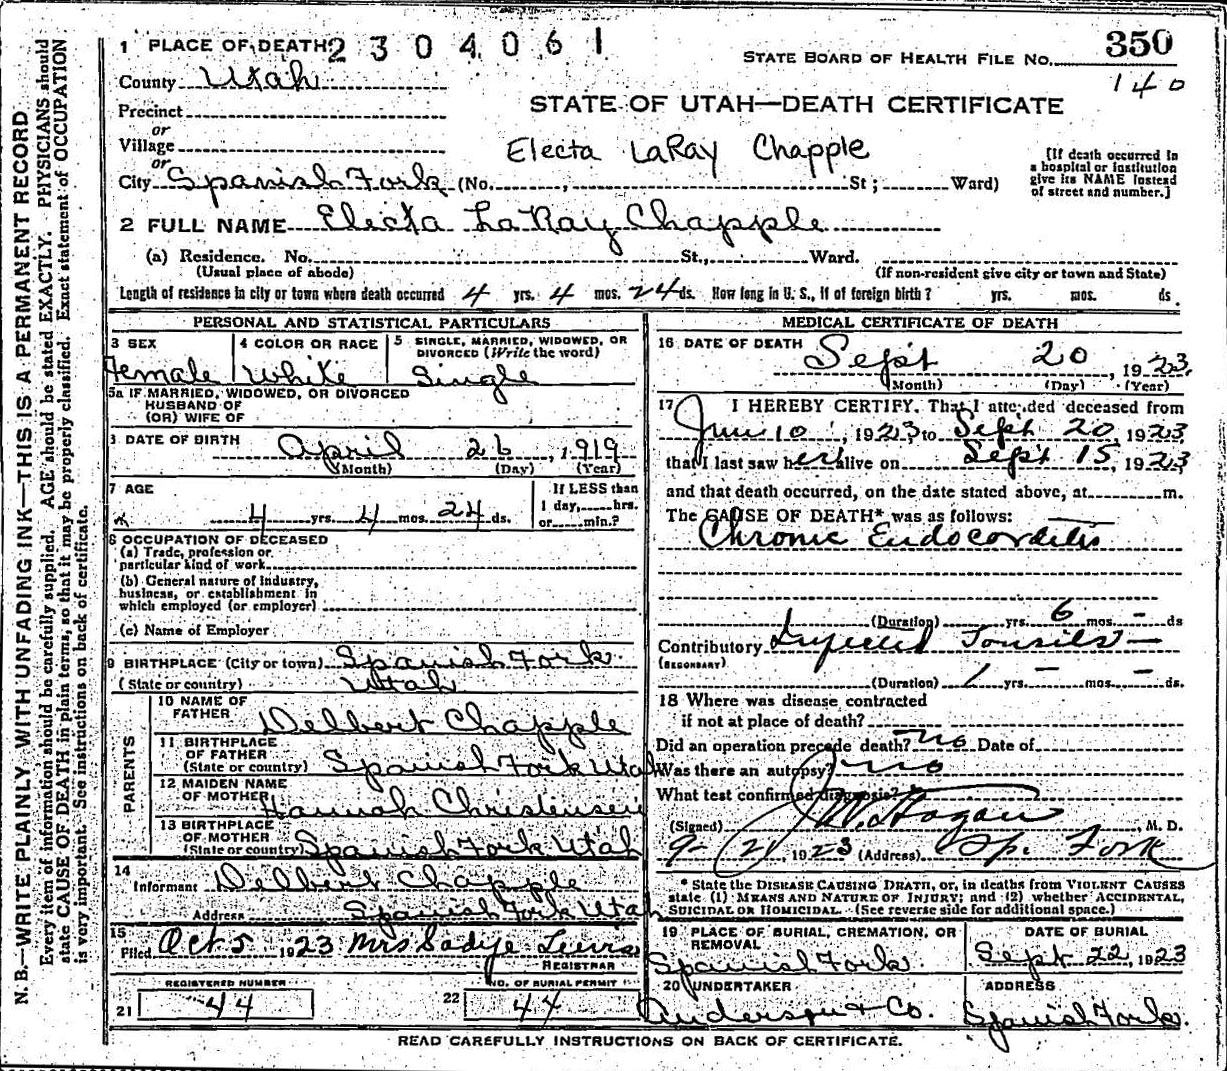 N. B.—WRITE PLAINLY WITH UNFADING INK—THIS IS A PERMANENT RECORD
Every item of information should be carefully supplied. AGE should be stated EXACTLY. PHYSICIANS should
state CAUSE OF DEATH in plain terms, so that it may be properly classified. Exact statement of OCCUPATION
is very important. See instructions on back of certificate.
1 PLACE OF DEATH 2304061
STATE BOARD OF HEALTH FILE No. 350
140
County Utah
STATE OF UTAH—DEATH CERTIFICATE
Precinct
or
Village
Electa LaRay Chapple
or
City Spanish Fork (No. , St; Ward)
[If death occurred in
a hospital or institution
give its NAME instead
of street and number.]
2 FULL NAME Electa LaRay Chapple
(a) Residence. No. St., Ward.
(Usual place of abode) (If non-resident give city or town and State)
Length of residence in city or town where death occurred 4 yrs. 4 mos. 24 ds. How long in U. S., if of foreign birth? yrs. mos. ds.
PERSONAL AND STATISTICAL PARTICULARS
3 SEX
Female
4 COLOR OR RACE
White
5 SINGLE, MARRIED, WIDOWED, OR
DIVORCED (Write the word)
Single
5a IF MARRIED, WIDOWED, OR DIVORCED
HUSBAND OF
(OR) WIFE OF
DATE OF BIRTH April 26, 1919
(Month) (Day) (Year)
7 AGE
4 yrs. 4 mos. 24 ds.
If LESS than
1 day, hrs.
or min.?
8 OCCUPATION OF DECEASED
(a) Trade, profession or
particular kind of work
(b) General nature of industry,
business, or establishment in
which employed (or employer)
(c) Name of Employer
9 BIRTHPLACE (City or town) Spanish Fork
(State or country) Utah
PARENTS
10 NAME OF
FATHER Delbert Chapple
11 BIRTHPLACE
OF FATHER
(State or country) Spanish Fork Utah
12 MAIDEN NAME
OF MOTHER Hannah Christensen
13 BIRTHPLACE
OF MOTHER
(State or country) Spanish Fork Utah
14
Informant Delbert Chapple
Address Spanish Fork Utah
15
Filed Oct 5 1923 Mrs Sadye Lewis
REGISTRAR
REGISTERED NUMBER
21 44
NO. OF BURIAL PERMIT
22 44
MEDICAL CERTIFICATE OF DEATH
16 DATE OF DEATH Sept 20, 1923
(Month) (Day) (Year)
17 I HEREBY CERTIFY. That I attended deceased from
Jun 10, 1923 to Sept 20, 1923
that I last saw her alive on Sept 15, 1923
and that death occurred, on the date stated above, at m.
The CAUSE OF DEATH* was as follows:
Chronic Endocorditis
(Duration) yrs. 6 mos. - ds
Contributory Infected Tonsils—
(SECONDARY)
(Duration) 1 yrs. - mos. - ds.
18 Where was disease contracted
if not at place of death?
Did an operation precede death? no Date of
Was there an autopsy? no
What test confirmed diagnosis?
(Signed) J.W. Hagan, M. D.
9-21, 1923 (Address) Sp. Fork
* State the DISEASE CAUSING DEATH, or, in deaths from VIOLENT CAUSES
state (1) MEANS AND NATURE OF INJURY; and (2) whether ACCIDENTAL,
SUICIDAL OR HOMICIDAL. (See reverse side for additional space.)
19 PLACE OF BURIAL, CREMATION, OR
REMOVAL
Spanish Fork.
DATE OF BURIAL
Sept 22, 1923
20 UNDERTAKER
Anderson & Co.
ADDRESS
Spanish Fork.
READ CAREFULLY INSTRUCTIONS ON BACK OF CERTIFICATE.